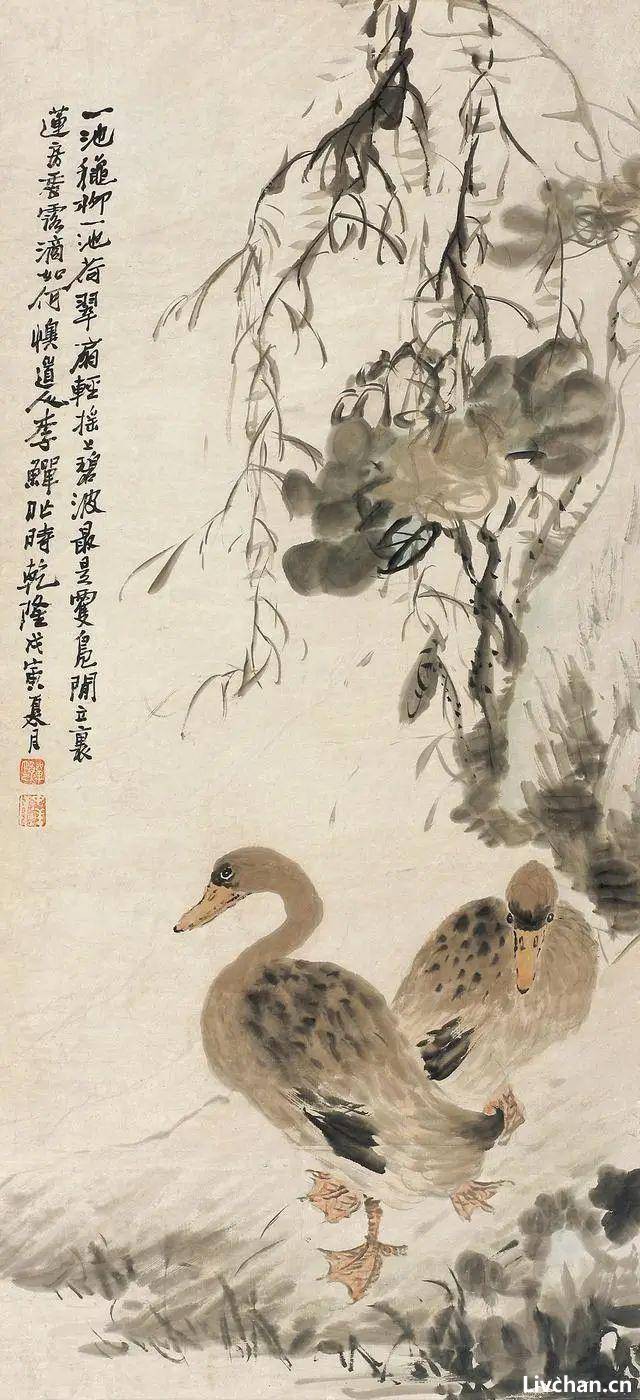 一池穐柳一池荷翠扇輕搖上碧波最是雙鳧閒立裏
蓮房垂露滴如何懊道人李鱓此時乾隆戊寅夏月
Livchan.cn